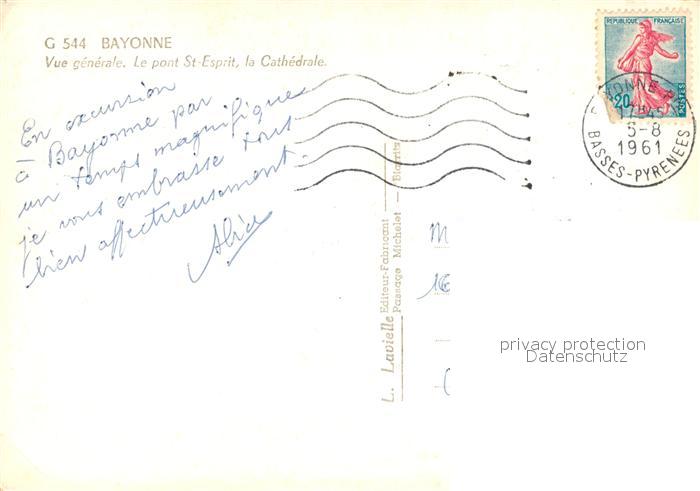 G 544 BAYONNE
Vue générale. Le pont St-Esprit, la Cathédrale.
En excursion
à Bayonne par
un temps magnifique
je vous embrasse tous
bien affectueusement.
Alice
L. Lavielle Editeur-Fabricant
Passage Michelet - Biarritz
REPUBLIQUE FRANÇAISE
0,20
POSTES
BAYONNE
17H45
5-8
1961
BASSES-PYRENEES
M
16
privacy protection
Datenschutz